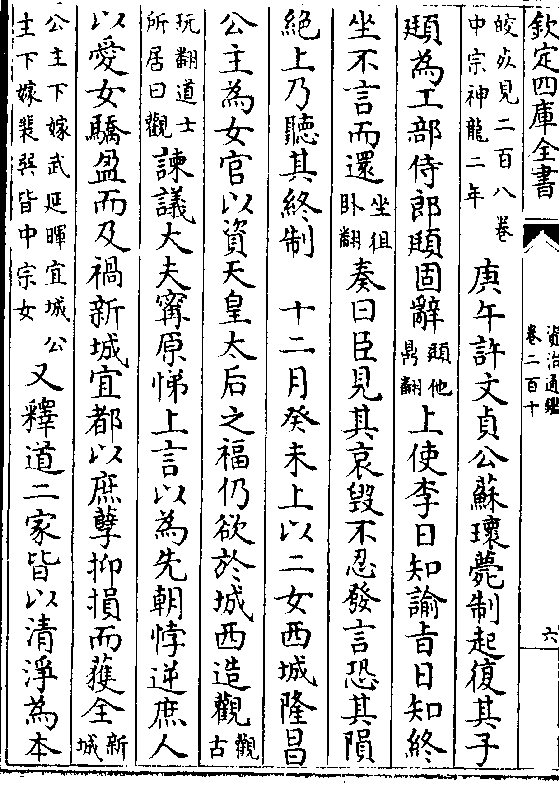 欽定四庫全書
資治通鑑
卷二百十
六
皎見二百八卷
中宗神龍二年
庚午許文貞公蘇瓌薨制起復其子
頲為工部侍郎頲固辭
頲他
鼎翻
上使李日知諭旨日知終
坐不言而還
坐徂
卧翻
奏曰臣見其哀毀不忍發言恐其隕
絕上乃聽其終制　十二月癸未上以二女西城隆昌
公主為女官以資天皇太后之福仍欲於城西造觀
觀
古
玩翻道士
所居曰觀
諫議大夫甯原悌上言以為先朝悖逆庶人
以愛女驕盈而及禍新城宜都以庶孽抑損而獲全
新
城
公主下嫁武延暉宜城公
主下嫁裴巽皆中宗女
又釋道二家皆以清淨為本